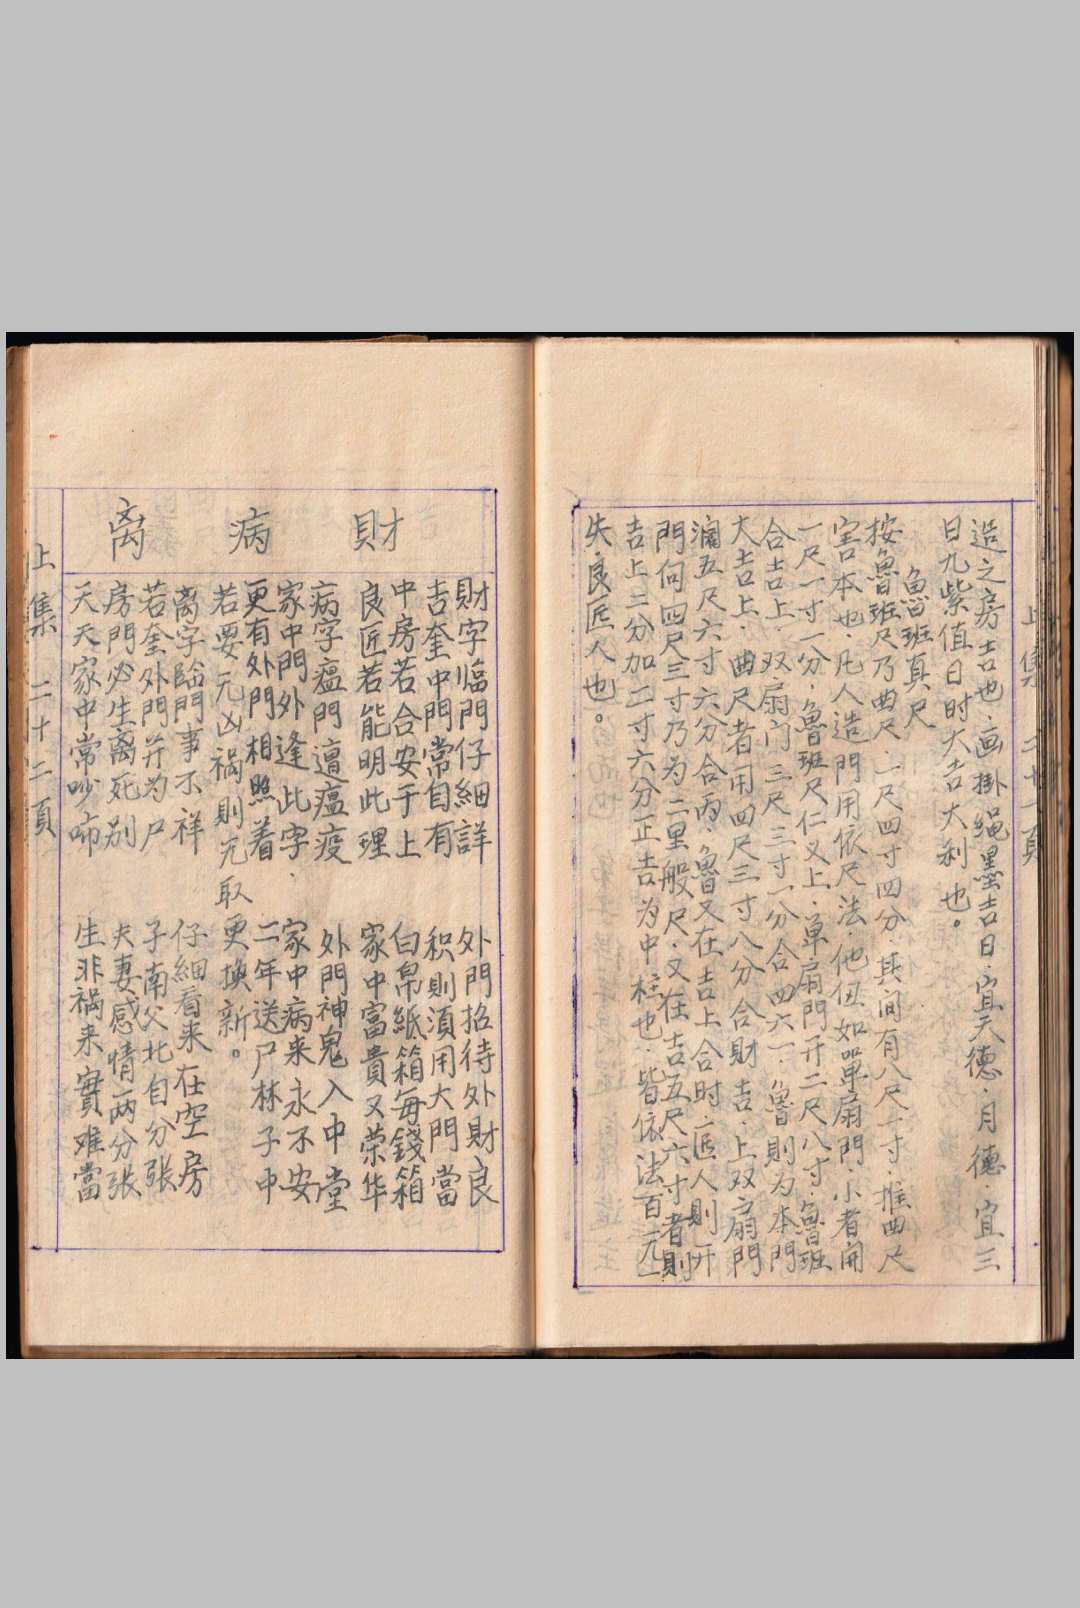 上集 二十一頁
造之房吉也.画掛绳墨吉日.宜天德.月德.宜三
日九紫值日时大吉大利也。
魯班真尺
按魯班尺乃曲尺.一尺四寸四分.其间有八尺一寸.推曲尺
害本也.凡人造門用依尺法.他但如單扇門.小者開
一尺一寸一分.魯班尺仁义上.单扇門开二尺八寸.魯班
合吉上.双扇门三尺三寸一分合四六一.魯則为本門
大吉上.曲尺者用四尺三寸八分合財吉.上双扇門
濶五尺六寸六分合丙.魯又在吉上合时.匠人則开
門何四尺三寸乃为二里般尺.又在吉五尺六寸者則
吉上二分加二寸六分正吉为中柱也.皆依法百无一
失.良匠人也。
財
財字临門仔細詳 外門招待外財良
吉奎中門常自有 积則須用大門當
中房若合安于上 白帛紙箱每錢箱
良匠若能明此理 家中富貴又荣华
病
病字瘟門遭瘟疫 外門神鬼入中堂
家中門外逢此字. 家中病来永不安
更有外門相照着 二年送尸林子中
若要无凶祸則无取更換新。
离
离字臨門事不祥 仔細看来在空房
若奎外門并为尸 子南父北自分張
房門必生离死别 夫妻感情两分張
天天家中常吵啼 生非祸来實难當
上集 二十二頁